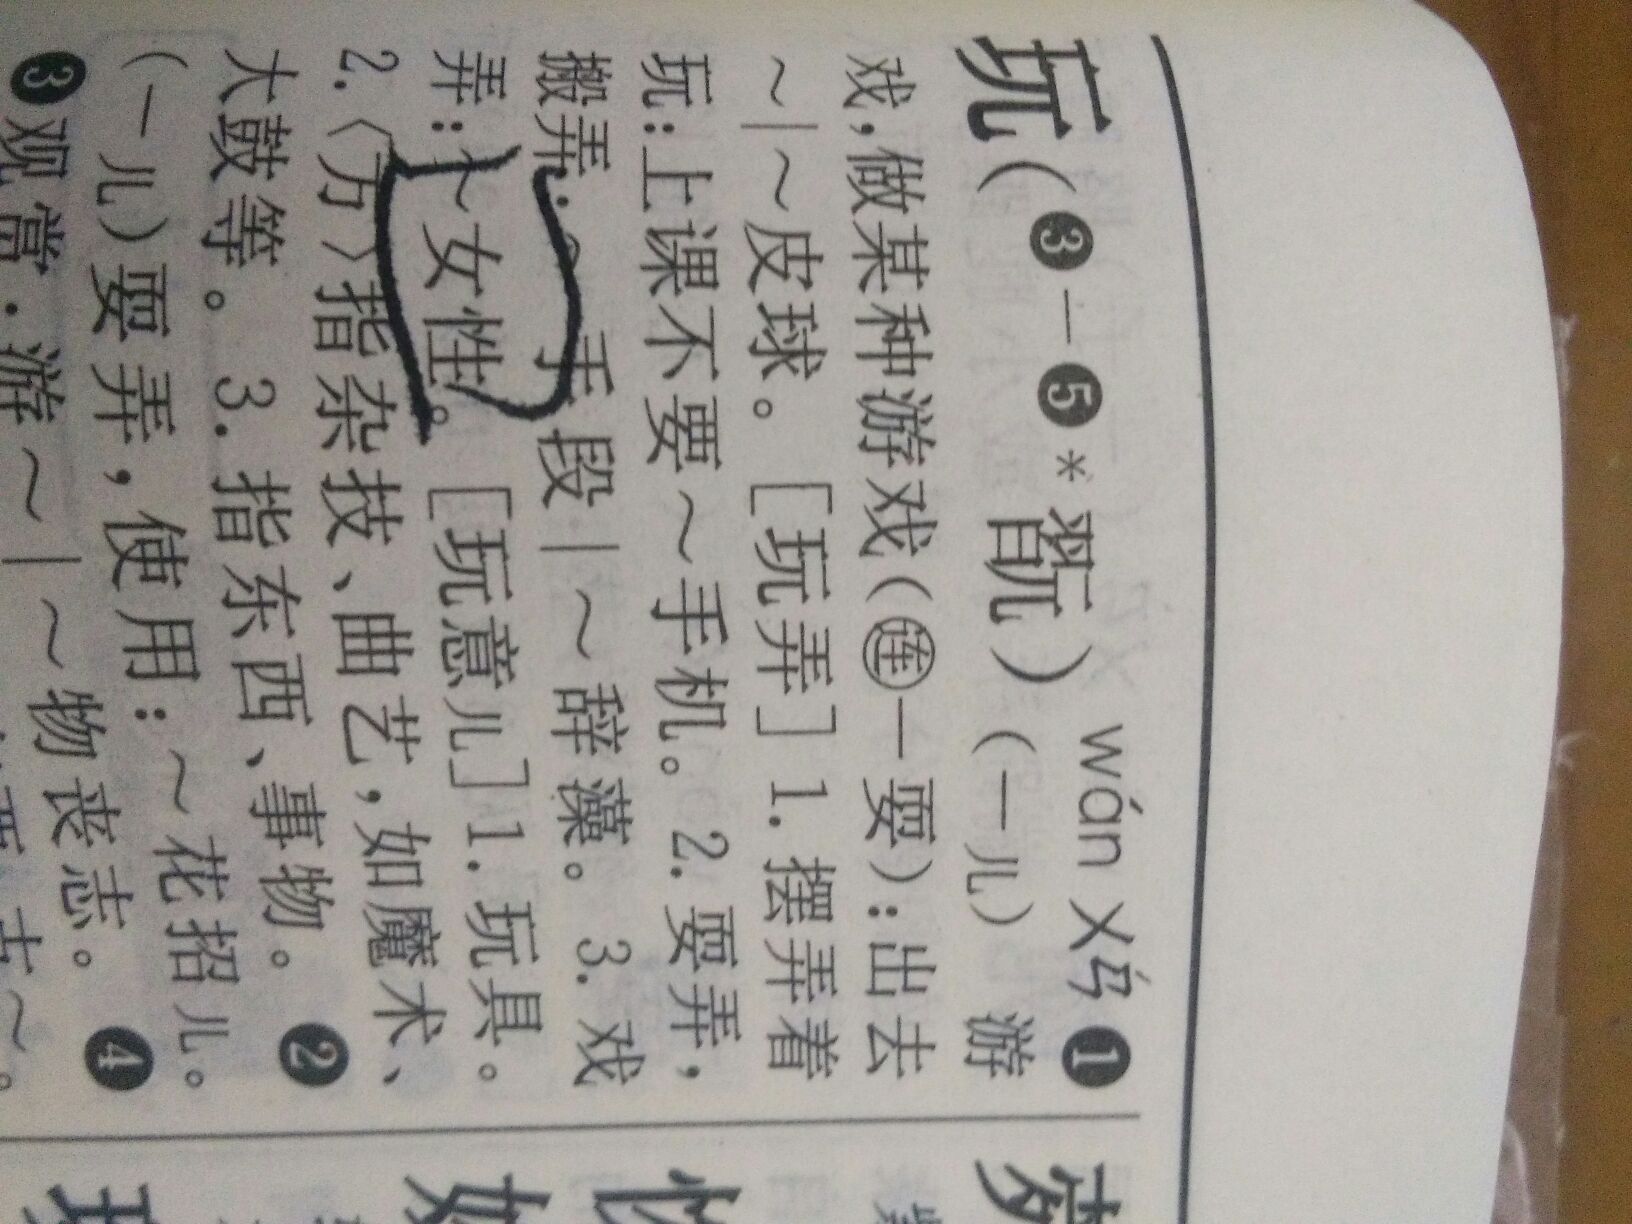 玩(❸-❺*翫) wán ㄨㄢˊ ❶
(一儿) 游
戏,做某种游戏(㊣一耍):出去
~|~皮球。[玩弄]1.摆弄着
玩:上课不要~手机。2.耍弄,
搬弄:~手段|~辞藻。3.戏
弄:~女性。[玩意儿]1.玩具。
2.〈方〉指杂技、曲艺,如魔术、
大鼓等。3.指东西、事物。❷
(一儿)耍弄,使用:~花招儿。
❸观赏:游~|~物丧志。❹